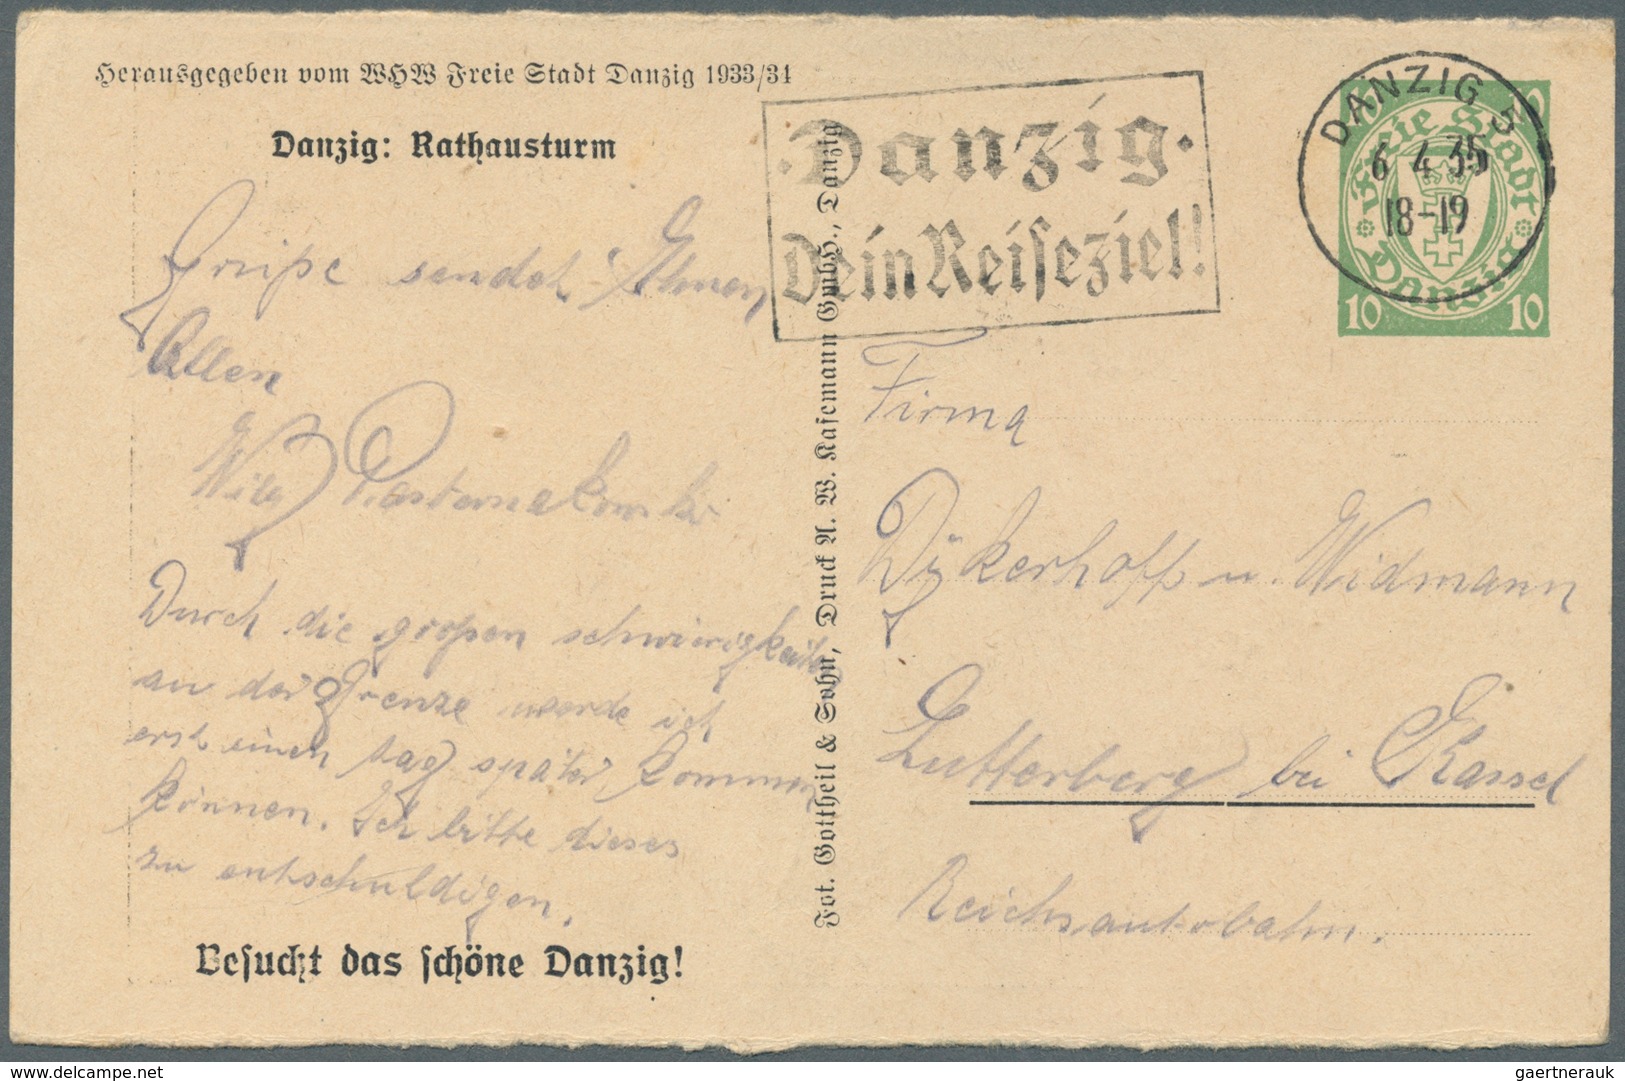 Herausgegeben vom WHW Freie Stadt Danzig 1933/34
Danzig: Rathausturm
Grüße sendet Ihnen
Allen
Durch die großen schwierigkeiten
an der Grenze werde ich
erst einen tag später kommen
können. Ich bitte dieses
zu entschuldigen.
Besucht das schöne Danzig!
Fot. Gottheil & Sohn, Druck A. W. Kafemann GmbH., Danzig
Danzig.
Dein Reiseziel!
DANZIG 5
6 4 35
18-19
Freie Stadt
Danzig
10 10
Firma
Dykerhoff u. Widmann
Lutterberg bei Kassel
Reichsautobahn.
gaertnerauk